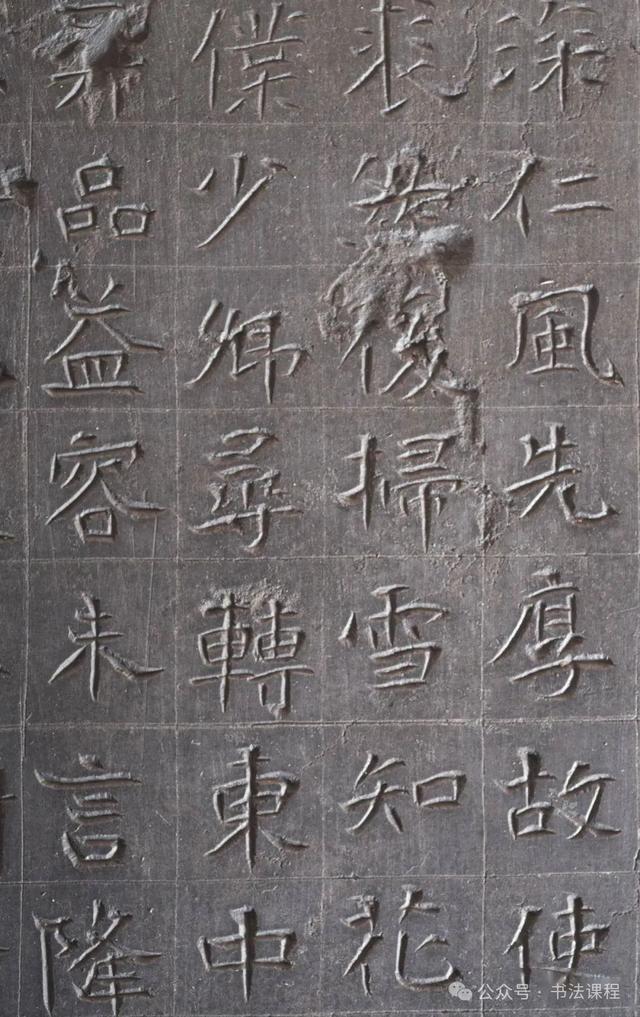 深仁風先厚故使
復掃雪知花
僕少卿尋轉東中
品益容朱言隆
公众号 · 书法课程